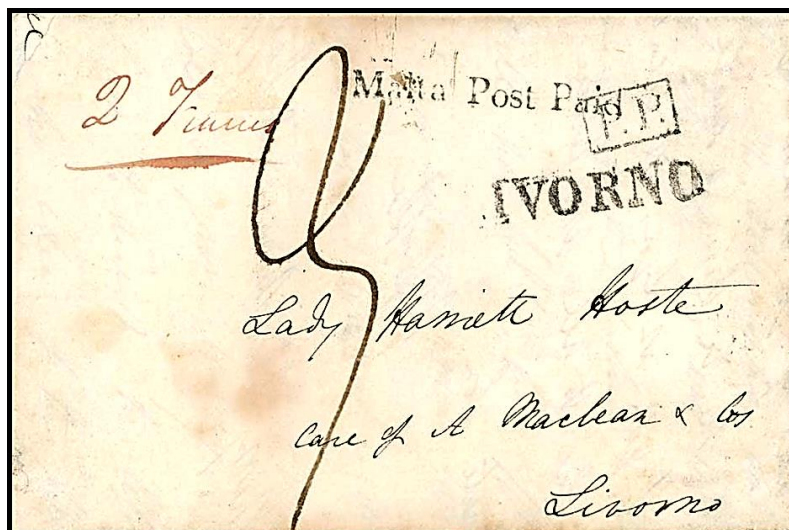 Malta Post Paid
P.P.
IVORNO
2
Lady Harriett Hoste
care of A Maclean & Cos
Livorno